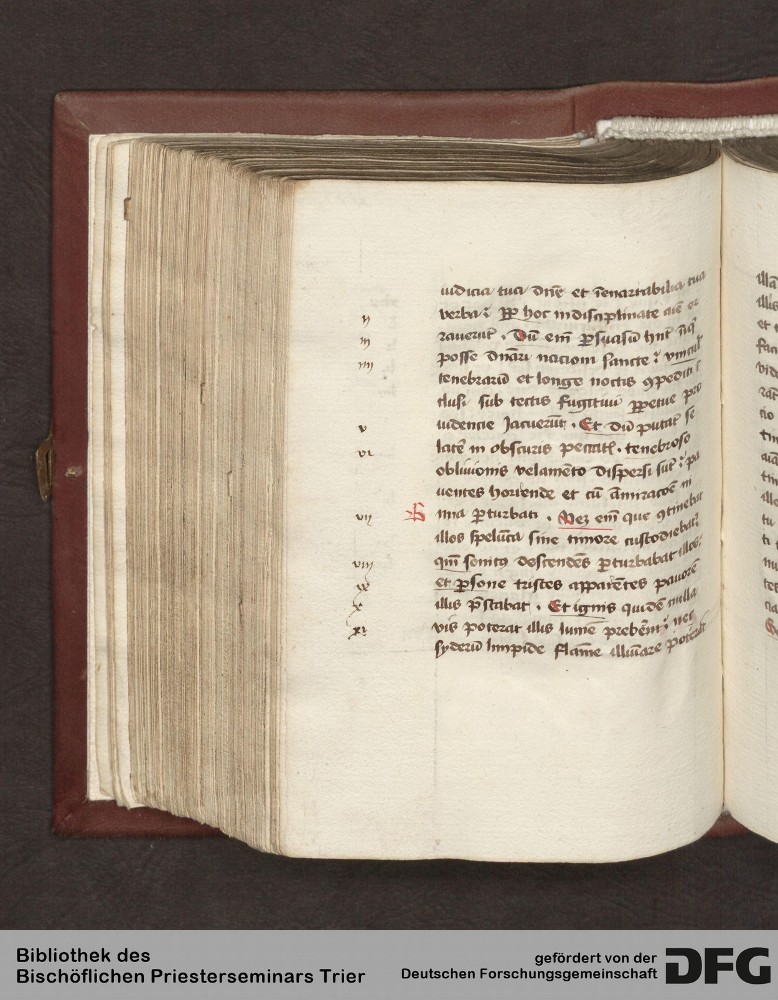 iudicia tua dn̄e et īenarrabilia tua
verba : ꝓp̄ hoc indisciplinate aīe er
n
rauerūt . Dū em̄ ꝑsuasū hn̄t
m
posse dn̄ari nacioni sancte : vincul
mı
tenebrarū et longe noctis ꝯpediti
clusi sub tectis fugitiui ꝑpetue pro
v
uidencie Jacuerūt . Et dū putāt se
vı
latē in obscuris peccatꝭ . tenebroso
obliuionis velamēto dispersi sūt : pa
uentes horrende et cū āmiracōe ni
vıı
B
mia ꝑturbati . Neqꝫ em̄ que ꝯtinebat
illos spelūca sine timore custodiebat
vııı
qm̄ sonitꝰ descendēs ꝑturbabat illos :
ıx
et ꝑsone tristes apparētes pauorē
x
illis p̄stabāt . Et ignis quidē nulla
xı
vis poterat illis lumē prebēre : nec
syderū limpide flam̄e illūıare poterāt
Bibliothek des
Bischöflichen Priesterseminars Trier
gefördert von der
Deutschen Forschungsgemeinschaft
DFG